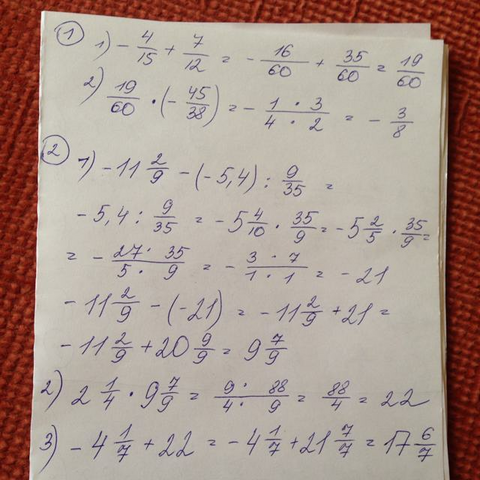 ① 1) - 4/15 + 7/12 = - 16/60 + 35/60 = 19/60
2) 19/60 · (- 45/38) = - 1 · 3/4 · 2 = - 3/8
② 1) - 11 2/9 - (- 5,4) : 9/35 =
- 5,4 : 9/35 = - 5 4/10 · 35/9 = - 5 2/5 · 35/9 =
= - 27 · 35/5 · 9 = - 3 · 7/1 · 1 = - 21
- 11 2/9 - (- 21) = - 11 2/9 + 21 =
- 11 2/9 + 20 9/9 = 9 7/9
2) 2 1/4 · 9 7/9 = 9 · 88/4 · 9 = 88/4 = 22
3) - 4 1/7 + 22 = - 4 1/7 + 21 7/7 = 17 6/7